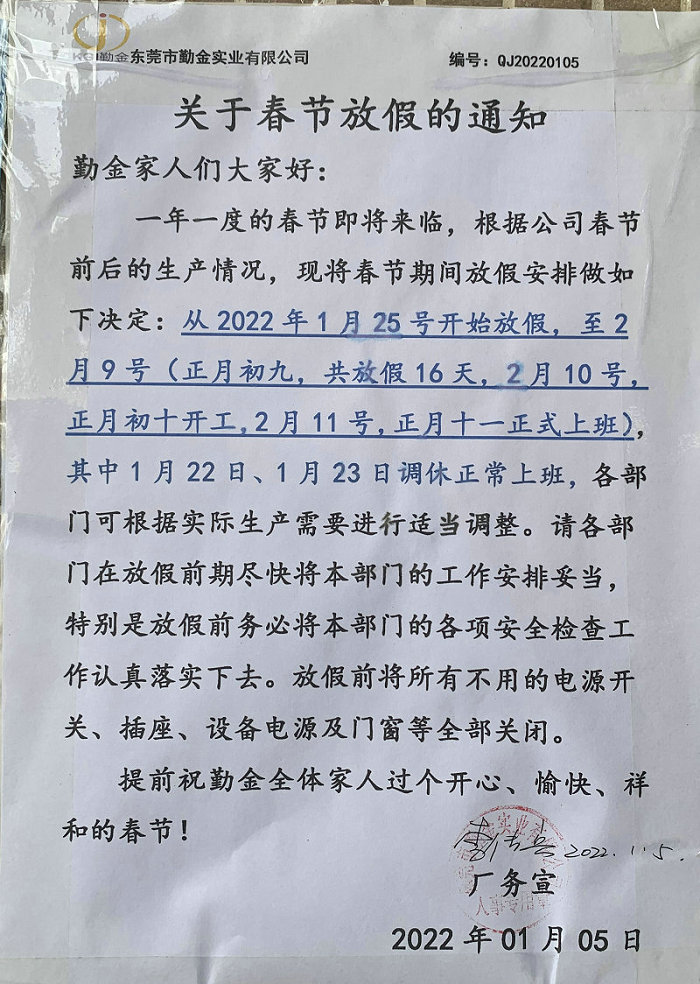 勤金东莞市勤金实业有限公司 编号：QJ20220105
关于春节放假的通知
勤金家人们大家好：
一年一度的春节即将来临，根据公司春节
前后的生产情况，现将春节期间放假安排做如
下决定：从2022年1月25号开始放假，至2
月9号（正月初九，共放假16天，2月10号，
正月初十开工,2月11号,正月十一正式上班），
其中1月22日、1月23日调休正常上班，各部
门可根据实际生产需要进行适当调整。请各部
门在放假前期尽快将本部门的工作安排妥当，
特别是放假前务必将本部门的各项安全检查工
作认真落实下去。放假前将所有不用的电源开
关、插座、设备电源及门窗等全部关闭。
提前祝勤金全体家人过个开心、愉快、祥
和的春节！
2022.1.5.
厂务宣
2022年01月05日